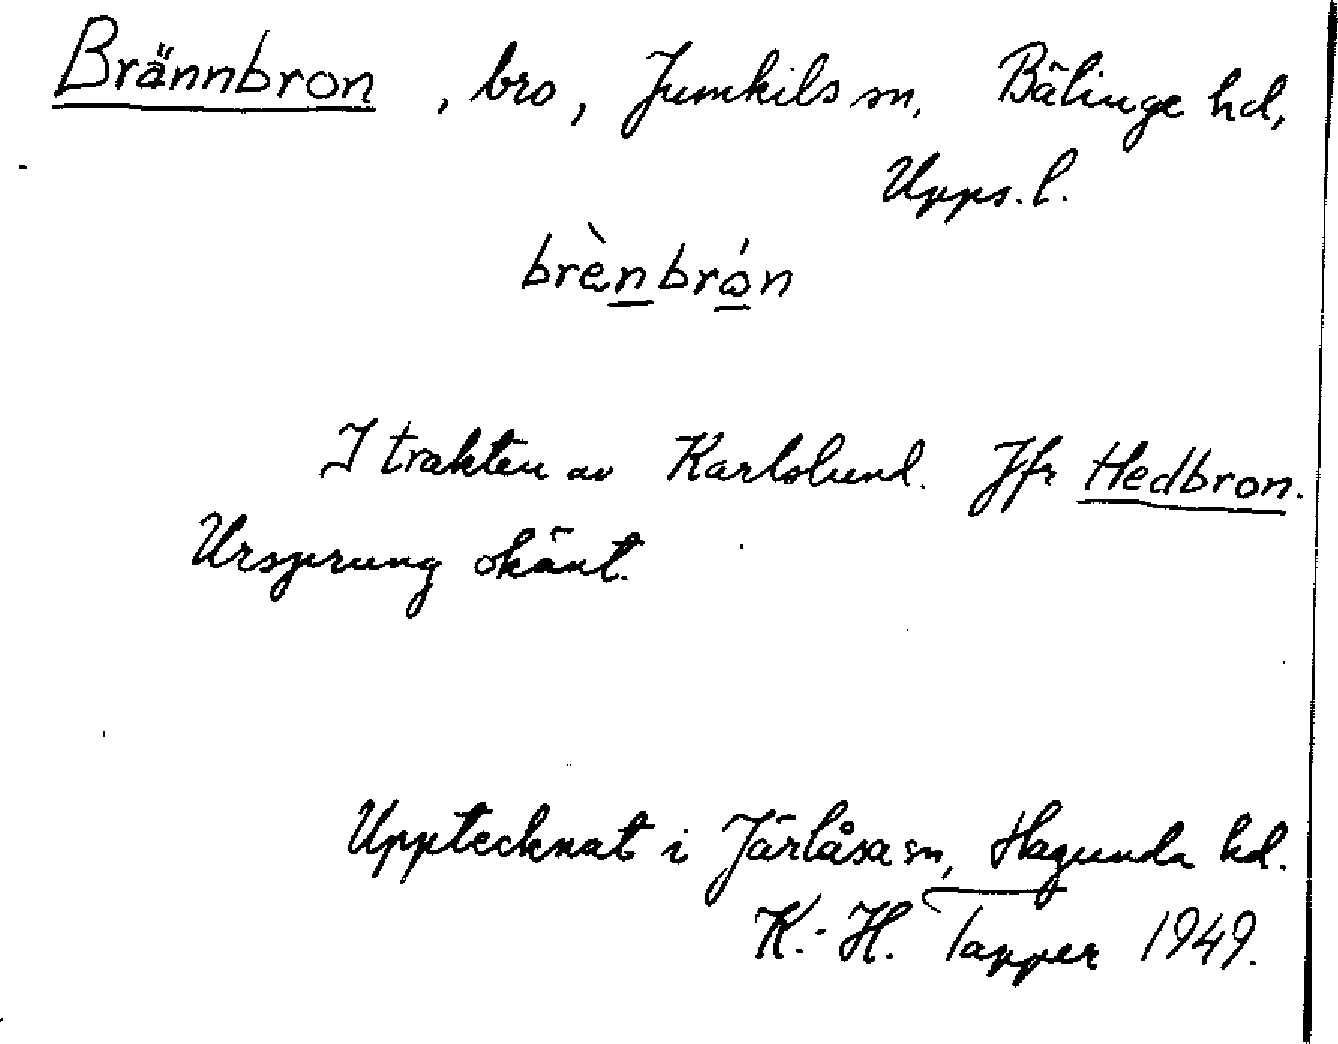 Brännbron, bro, Jumkils sn, Bälinge hd,
Upps. l.
brènbrón
I trakten av Karlslund. Jfr Hedbron.
Ursprung okänt.
Upptecknat i Järlåsa sn, Hagunda hd.
K.-H. Tapper 1949.